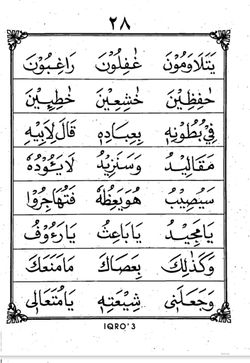 ٢٨
يَتَلَاوَمُوْنَ غٰفِلُوْنَ رَاغِبُوْنَ
حٰفِظِيْنَ خٰشِعِيْنَ خٰطِـِٕيْنَ
فِيْ بُطُوْنِهٖ بِعِبَادِهٖ قَالَ لِاَبِيْهِ
مَقَالِيْدُ وَسَنَزِيْدُ لَا يَـُٔوْدُهٗ
سَيُصِيْبُ هُوَ يَعِظُهٗ فَتُهَاجِرُوْا
يَا مَجِيْدُ يَا بَاعِثُ يَا رَءُوْفُ
وَكَذٰلِكَ بِعَصَاكَ مَا مَنَعَكَ
وَجَعَلَنِيْ شِيْعَتِهٖ يَا مُتَعَالِيْ
IQRO'3